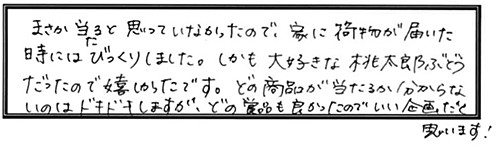 まさか当ると思っていなかったので、家に荷物が届いた
時にはびっくりしました。しかも大好きな桃太郎ぶどう
だったので嬉しかったです。どの商品が当たるか分からな
いのはドキドキしますが、どの賞品も良かったのでいい企画だと
思います!